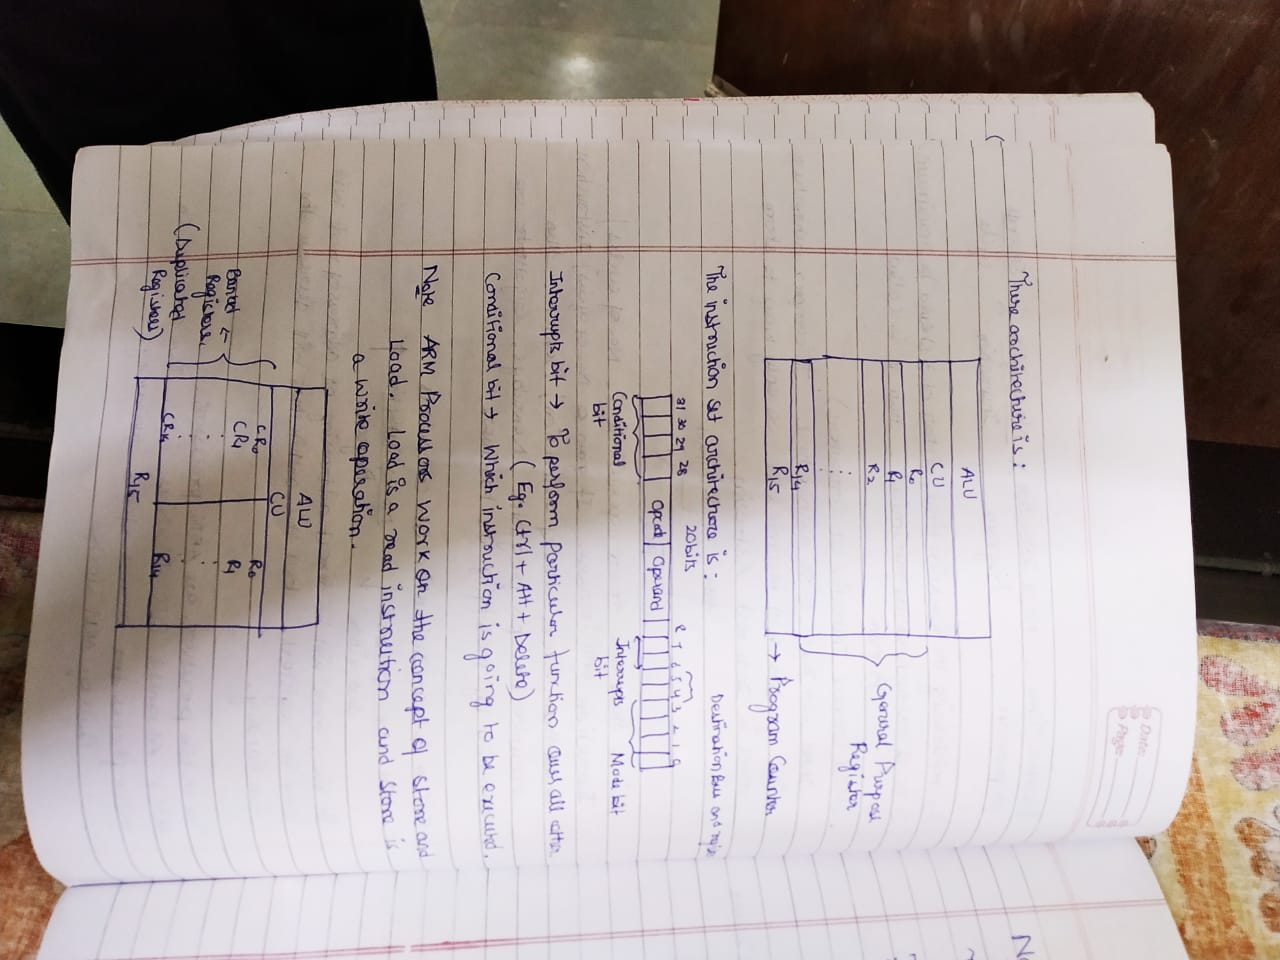 Date:
Page:
There architecture is:
ALU
CU
R0
R1
R2
R14
R15
General Purpose
Register
→ Program Counter
The instruction set architecture is:
20 bits
Destination
and
31 30 29 28
7 6 5 4 3 2 1 0
Opcode Operand
Conditional
bit
Interrupts
bit
Mode bit
Interrupts bit → To perform particular function over all other
(Eg. Ctrl + Alt + Delete)
Conditional bit → Which instruction is going to be executed.
Note ARM Processors work on the concept of store and
Load. Load is a read instruction and store is
a write operation.
ALU
CU
CR0 R0
CR1 R1
CR14 R14
R15
Banked ←
Registers
(Duplicated
Registers)